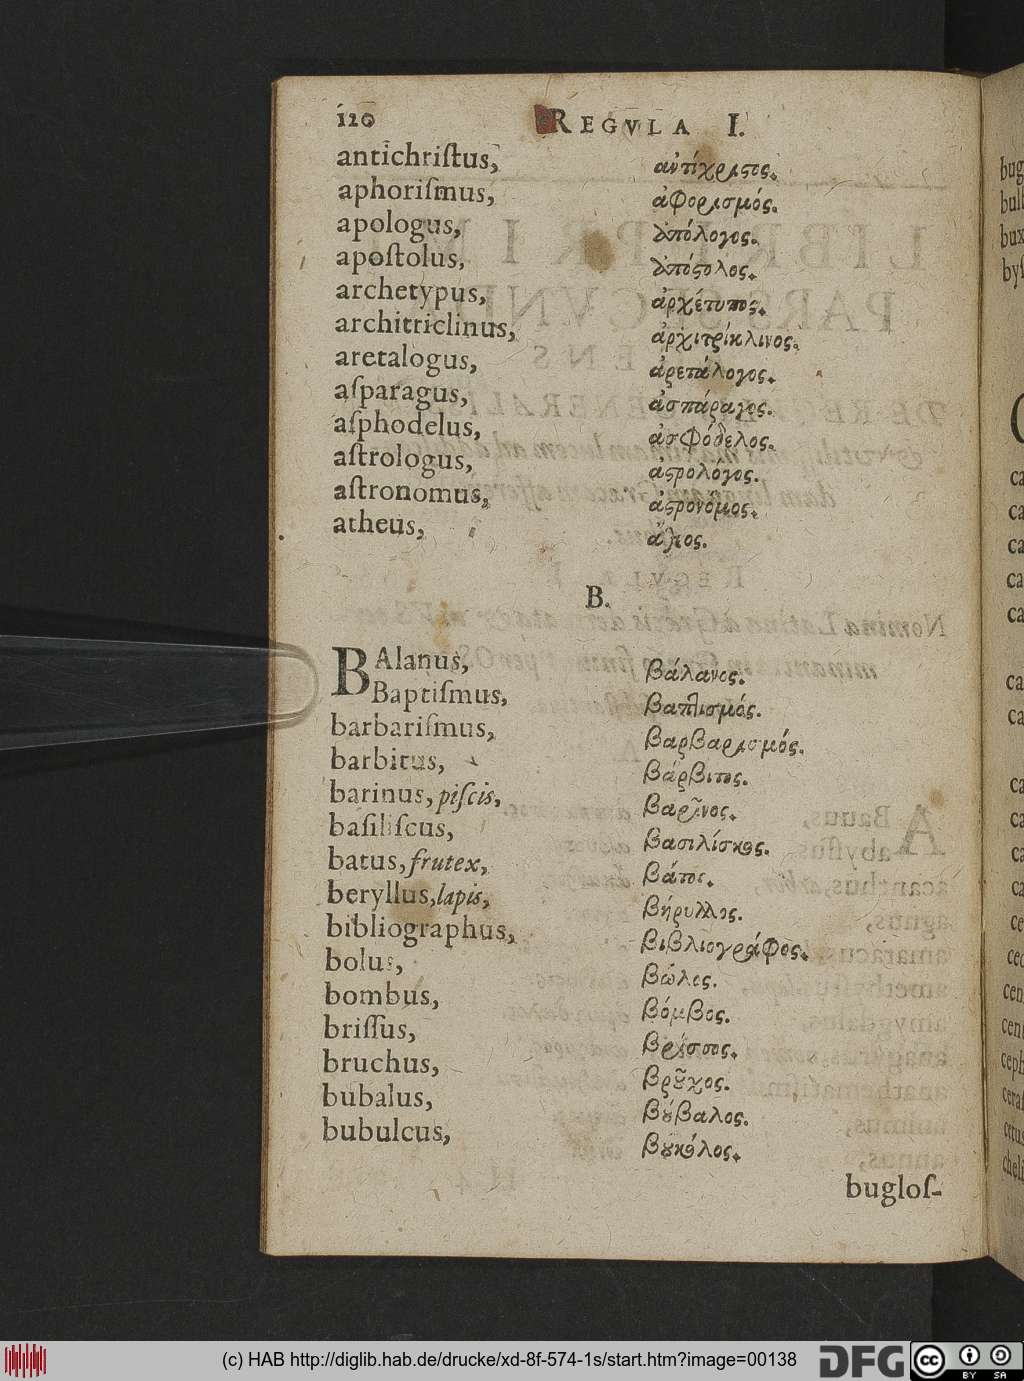 120 REGVLA I.
antichriſtus, ἀντίχριϛος.
aphoriſmus, ἀφορισμός.
apologus, ἀπόλογος.
apoſtolus, ἀπόϛολος.
archetypus, ἀρχέτυπος.
architriclinus, ἀρχιτρίκλινος.
aretalogus, ἀρετάλογος.
aſparagus, ἀσπάραγος.
aſphodelus, ἀσφόδελος.
aſtrologus, ἀϛρολόγος.
aſtronomus, ἀϛρονόμος.
atheus, ἄθεος.
B.
BAlanus, βάλανος.
Baptiſmus, βαπτισμός.
barbariſmus, βαρβαρισμός.
barbitus, βάρβιτος.
barinus, piſcis, βαρῖνος.
baſiliſcus, βασιλίσκος.
batus, frutex, βάτος.
beryllus, lapis, βήρυλλος.
bibliographus, βιβλιογράφος.
bolus, βῶλος.
bombus, βόμβος.
briſſus, βρίσσος.
bruchus, βροῦχος.
bubalus, βούβαλος.
bubulcus, βουκόλος.
bugloſ-
(c) HAB http://diglib.hab.de/drucke/xd-8f-574-1s/start.htm?image=00138
DFG
cc BY SA